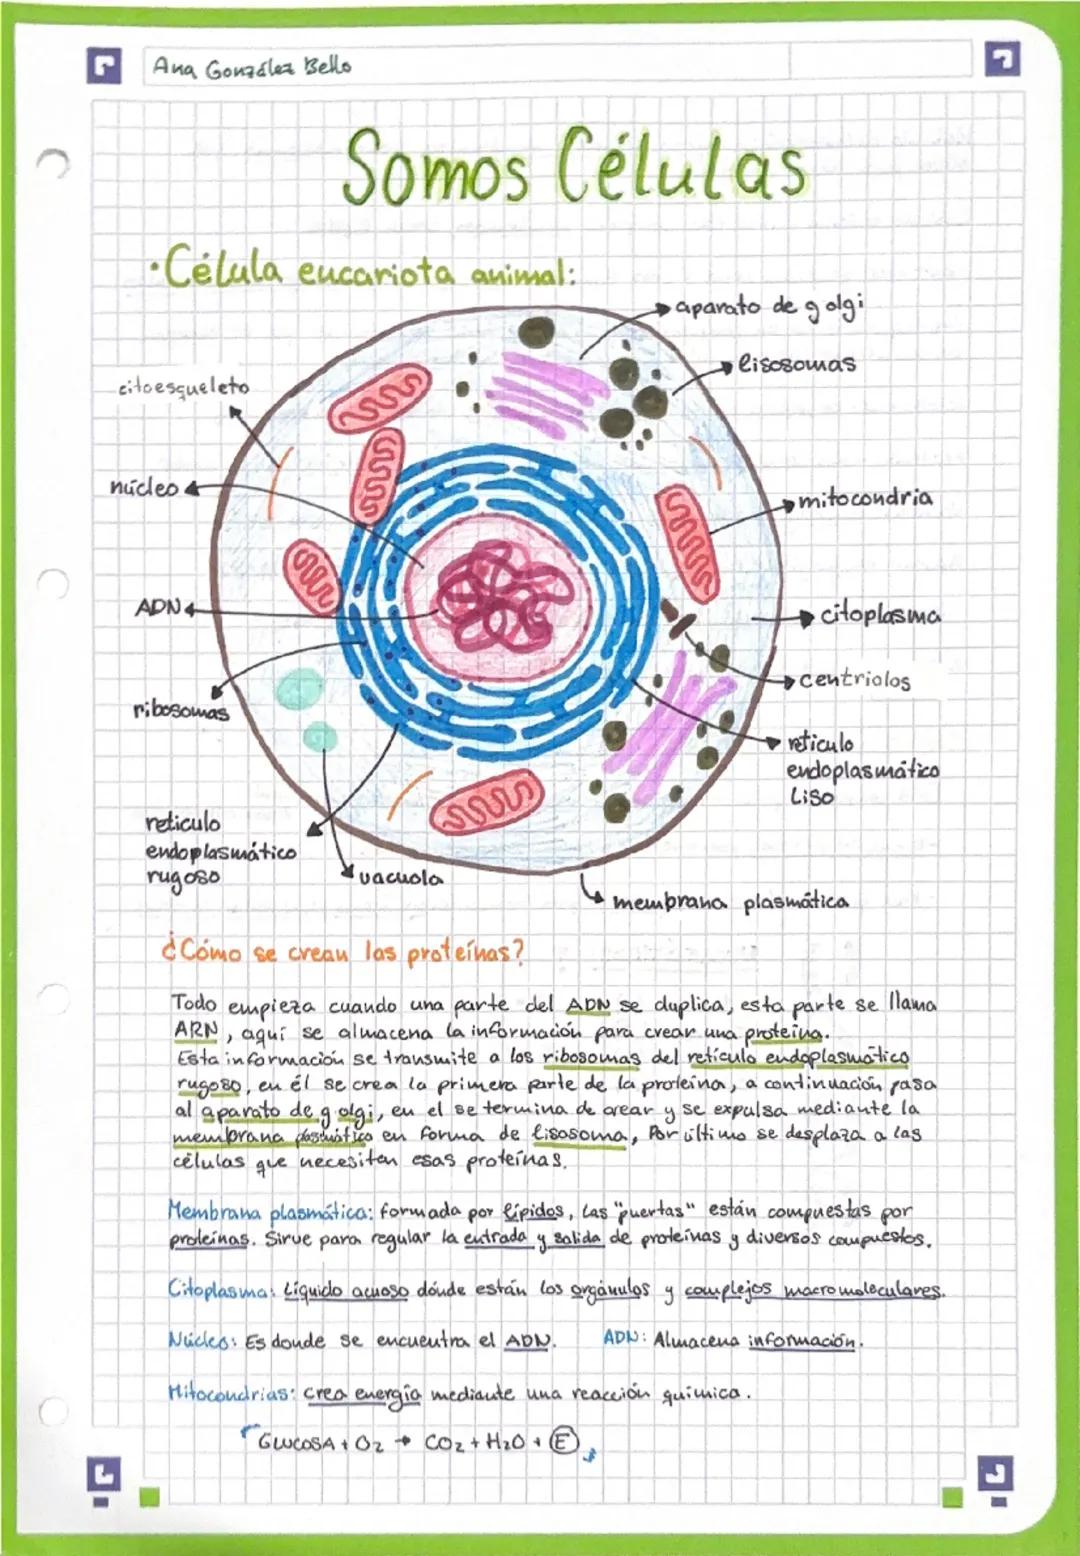 Ana González Bello
Somos Células
·Célula eucariota animal:
aparato de golgi
lisosomas
citoesqueleto
núcleo
mitocondria
ADN
citoplasma
centriolos
ribosomas
retículo
endoplasmático
Liso
reticulo
endoplasmático
rugoso
vacuola
membrana plasmática
¿Cómo se crean las proteínas?
Todo empieza cuando una parte del ADN se duplica, esta parte se llama
ARN, aquí se almacena la información para crear una proteína.
Esta información se transmite a los ribosomas del retículo endoplasmático
rugoso, en él se crea la primera parte de la proteína, a continuación pasa
al aparato de golgi, en el se termina de crear y se expulsa mediante la
membrana plasmática en forma de lisosoma, Por último se desplaza a las
células que necesiten esas proteínas.
Membrana plasmática: formada por lípidos, las "puertas" están compuestas por
proteínas. Sirve para regular la entrada y salida de proteínas y diversos compuestos.
Citoplasma: Líquido acuoso dónde están los orgánulos y complejos macromoleculares.
Núcleo: Es donde se encuentra el ADN. ADN: Almacena información.
Mitocondrias: crea energía mediante una reacción química.
GLUCOSA + O2 → CO2 + H2O + E